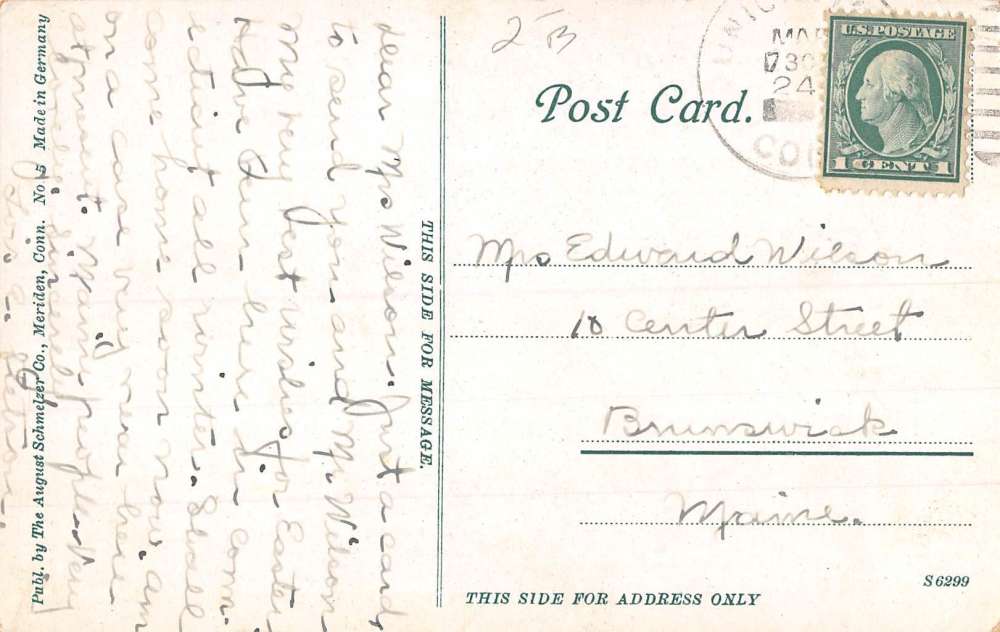 Dear Mrs Wilson. Just a card
to send you and Mr. Wilson
my very best wishes for Easter
Have been here in Conn-
ecticut all winter. Shall
come home soon now. Am
on a care very near here
at present. Many people. Very
Sincerely
THIS SIDE FOR MESSAGE.
Publ. by The August Schmelzer Co., Meriden, Conn. No. 5 Made in Germany
2 B
MAR
730
24
CO
U.S. POSTAGE
1 CENT 1
Post Card.
Mrs Edward Wilson
10 Center Street
Brunswick
Maine.
S 6299
THIS SIDE FOR ADDRESS ONLY